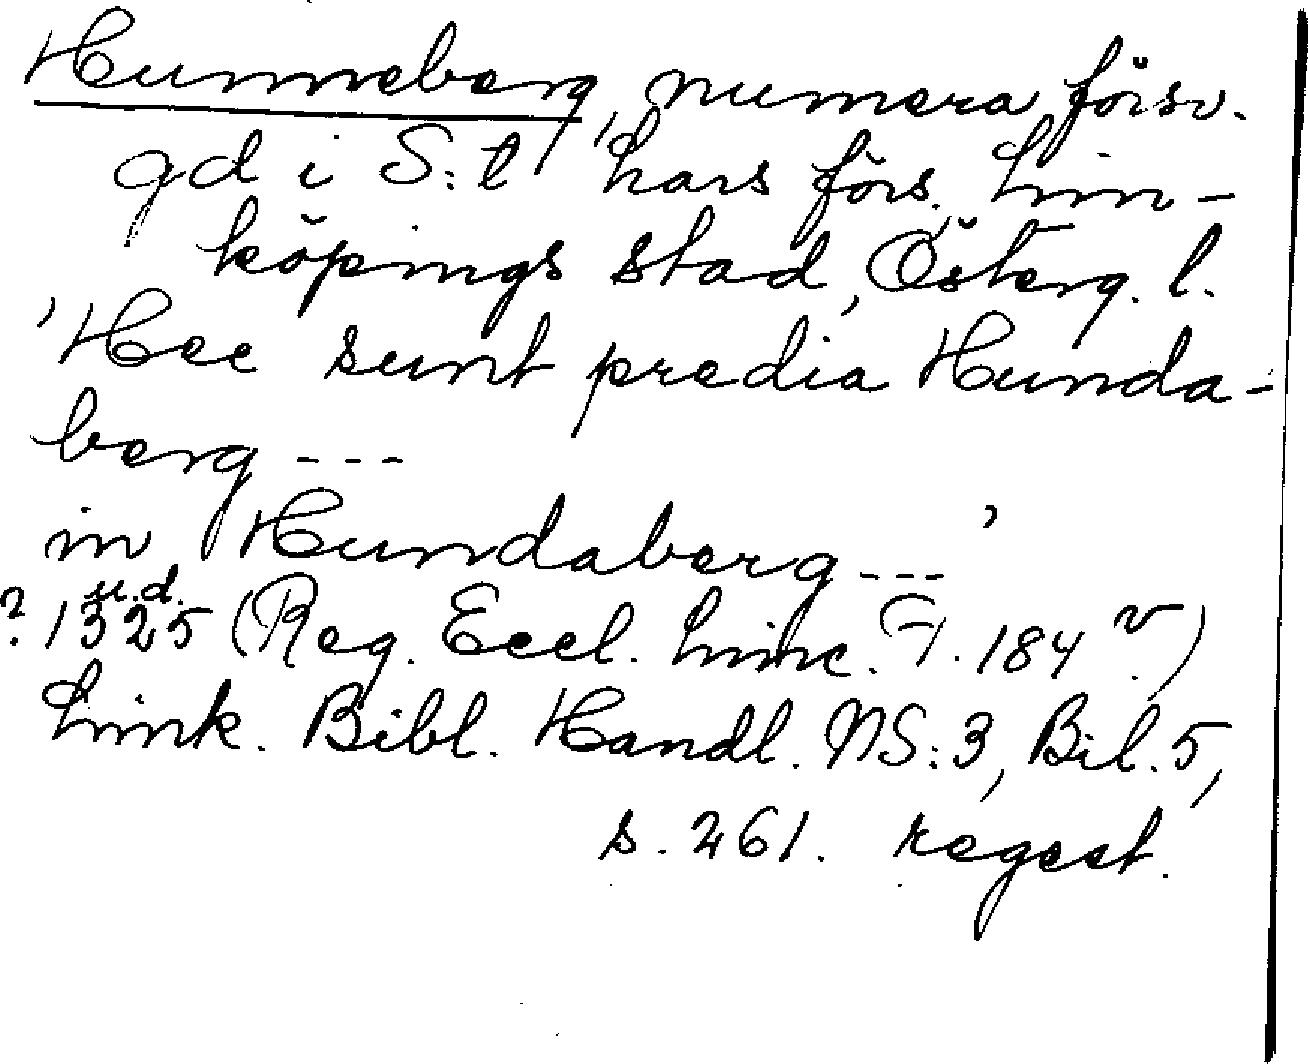 Hunneberg, numera försv.
gd i S:t Lars förs. Lin-
köpings stad, Österg. l.
'Hec sunt predia Hunda-
berg ---
in Hundaberg ---'
u.d.
? 1325 (Reg. Eccl. Linc. F. 184 v.)
Link. Bibl. Handl. NS:3, Bil. 5,
s. 261. regest.